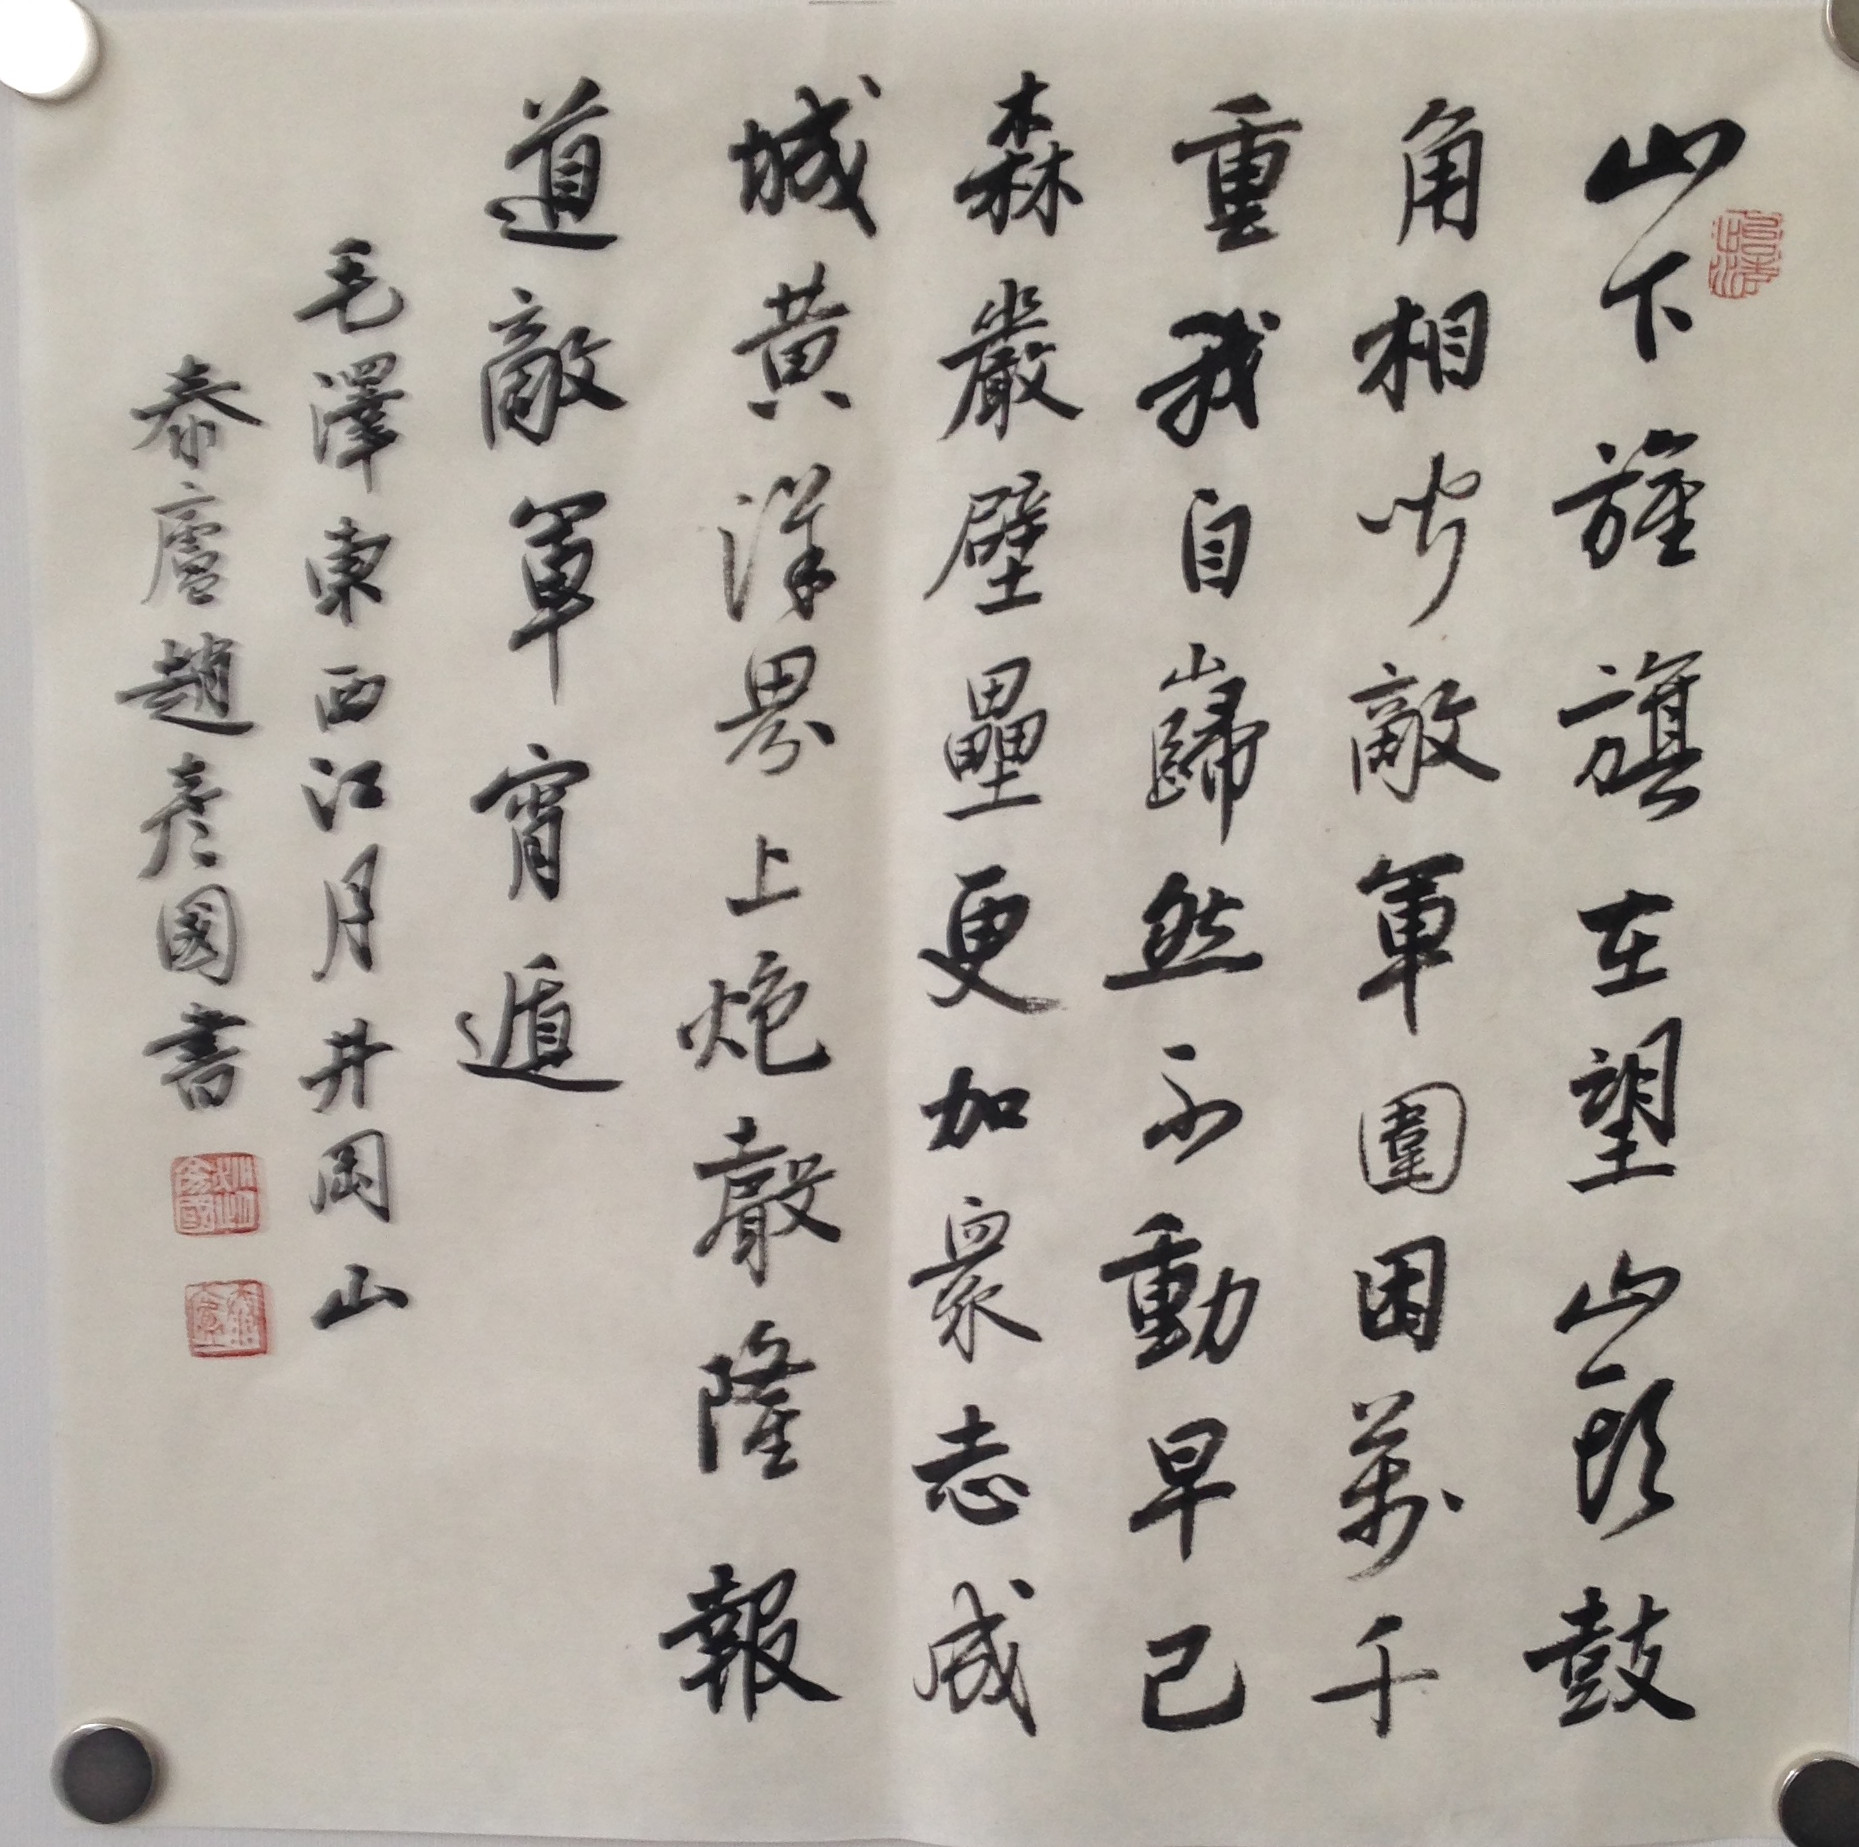 山下旌旗在望山頭鼓
角相聞敵軍圍困萬千
重我自巋然不動早已
森嚴壁壘更加眾志成
城黃洋界上炮聲隆報
道敵軍宵遁
毛澤東西江月井岡山
泰廬趙彥國書